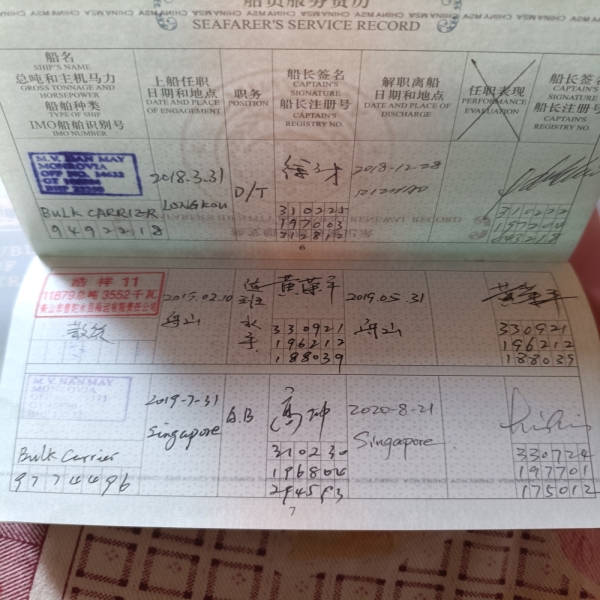 船员服务资历
SEAFARER'S SERVICE RECORD
船名
SHIP'S NAME
总吨和主机马力
GROSS TONNAGE AND
HORSEPOWER
船舶种类
TYPE OF SHIP
IMO船舶识别号
IMO NUMBER
上船任职
日期和地点
DATE AND PLACE
OF ENGAGEMENT
职务
POSITION
船长签名
CAPTAIN'S
SIGNATURE
船长注册号
CAPTAIN'S
REGISTRY NO.
解职离船
日期和地点
DATE AND PLACE OF
DISCHARGE
任职表现
PERFORMANCE
EVALUATION
船长签名
CAPTAIN'S
SIGNATURE
船长注册号
CAPTAIN'S
REGISTRY NO.
MONROVIA
BULK CARRIER
9492218
2018.3.31
LONGKOU
D/T
310225
197003
2018-12-28
310222
6
浩祥 11
散货
舟山
值班水手
黄荣平
330921
196212
188039
2019.05.31
舟山
黄荣平
330921
196212
188039
M.V. NAN MAY
MONROVIA
Bulk Carrier
9774496
2019-7-31
Singapore
A.B
高坤
310230
196804
2020-8-21
Singapore
330724
197701
175012
7